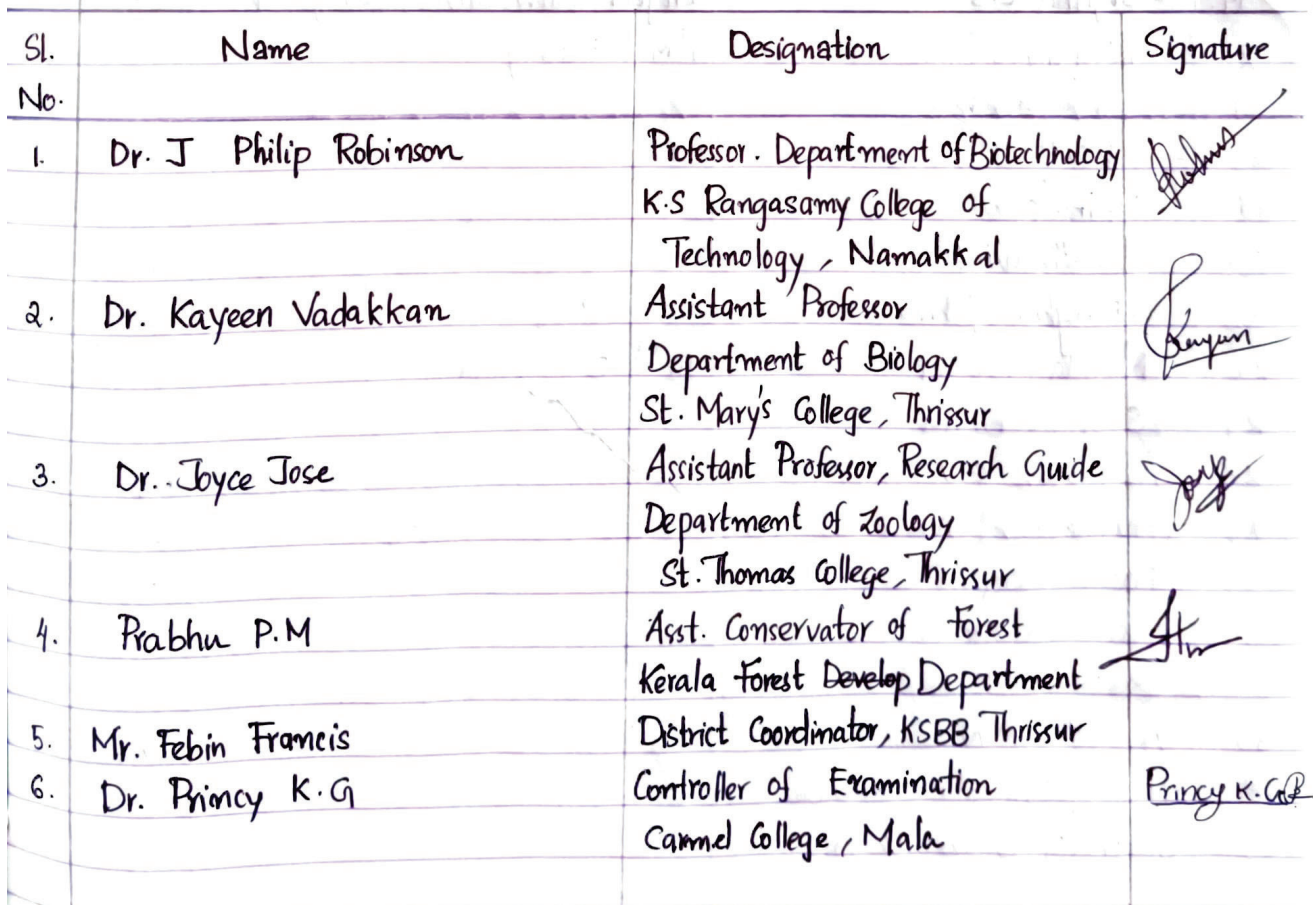 Sl. Name Designation Signature
No.
1. Dr. J Philip Robinson Professor. Department of Biotechnology
K.S Rangasamy College of
Technology, Namakkal
2. Dr. Kayeen Vadakkan Assistant Professor
Department of Biology
St. Mary's College, Thrissur
3. Dr. Joyce Jose Assistant Professor, Research Guide
Department of Zoology
St. Thomas College, Thrissur
4. Prabhu P.M Asst. Conservator of Forest
Kerala Forest Develop Department
5. Mr. Febin Francis District Coordinator, KSBB Thrissur
6. Dr. Princy K.G Controller of Examination Princy K.G
Carmel College, Mala